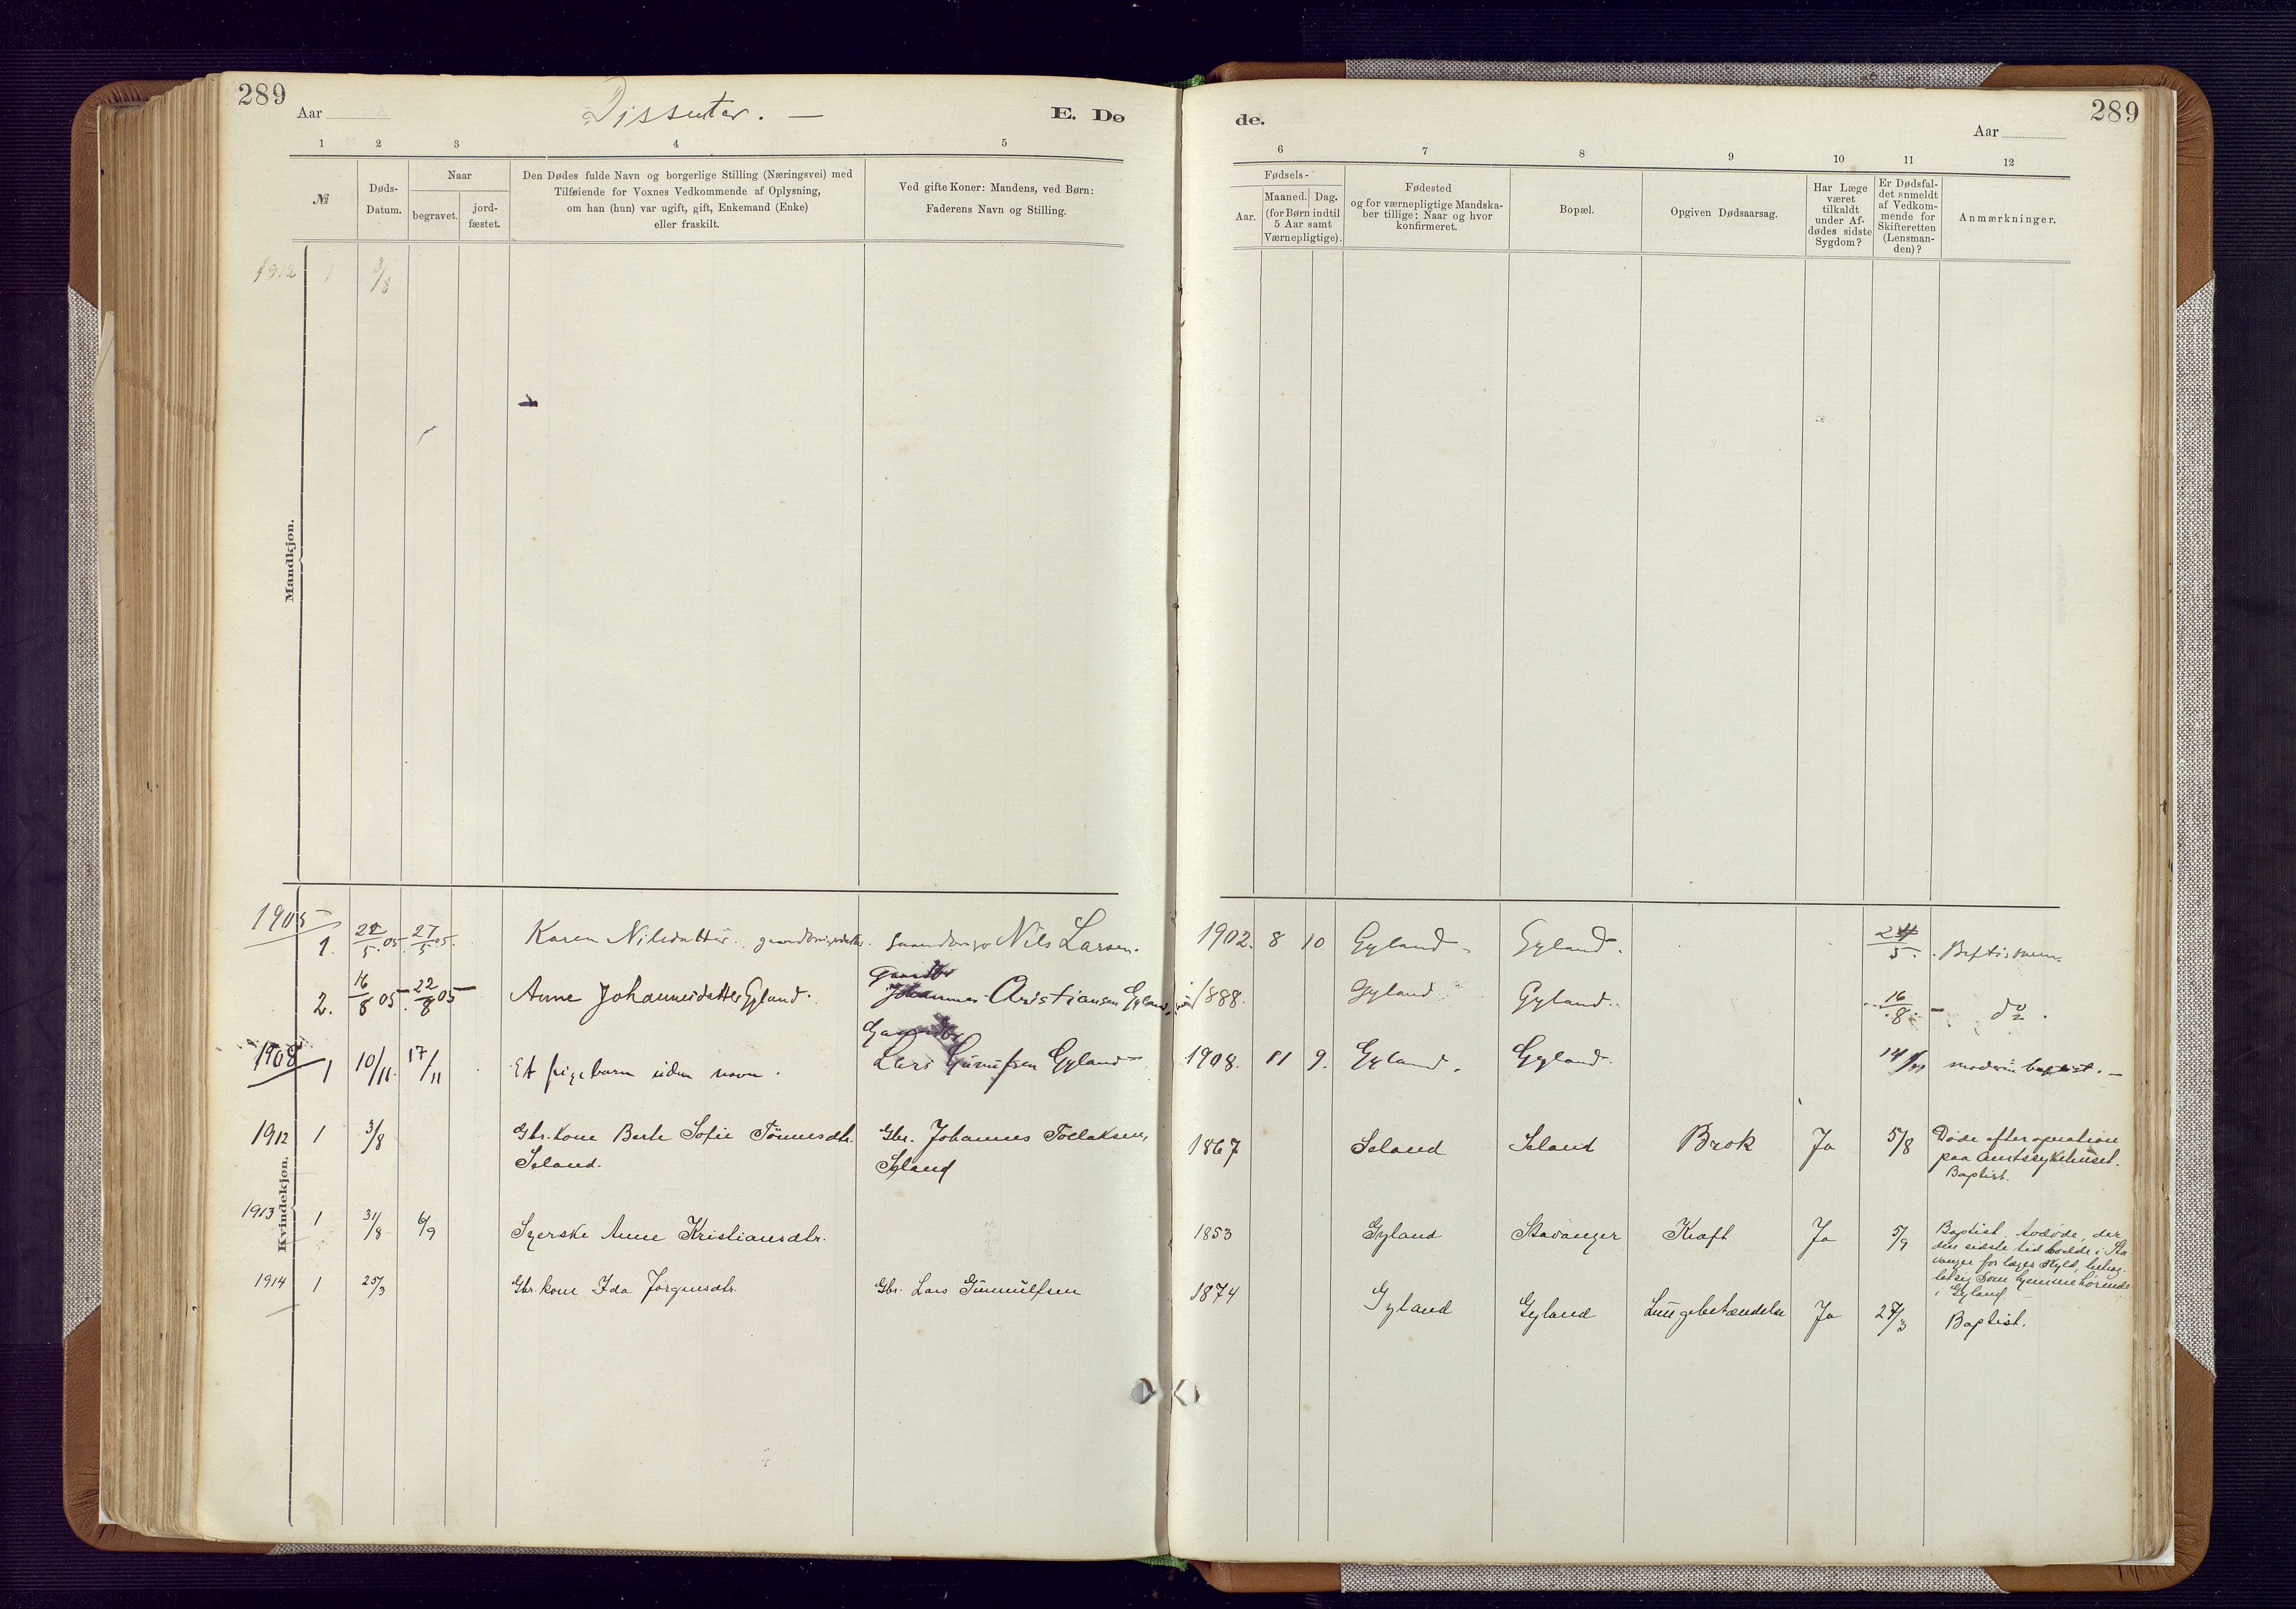 289
Aar
Dissenter. —
E. Dø
1 2 3 4 5
№
Døds-
Datum.
Naar
begravet.
jord-
fæstet.
Den Dødes fulde Navn og borgerlige Stilling (Næringsvei) med
Tilføiende for Voxnes Vedkommende af Oplysning,
om han (hun) var ugift, gift, Enkemand (Enke)
eller fraskilt.
Ved gifte Koner: Mandens, ved Børn:
Faderens Navn og Stilling.
de.
Aar
289
6 7 8 9 10 11 12
Fødsels-
Aar.
Maaned. Dag.
(for Børn indtil
5 Aar samt
Værnepligtige).
Fødested
og for værnepligtige Mandska-
ber tillige: Naar og hvor
konfirmeret.
Bopæl.
Opgiven Dødsaarsag.
Har Læge
været
tilkaldt
under Af-
dødes sidste
Sygdom?
Er Dødsfal-
det anmeldt
af Vedkom-
mende for
Skifteretten
(Lensman-
den)?
Anmærkninger.
1912 1 3/8
Mandkjøn.
Kvindekjøn.
1905
1. 5. 05. 27/5 05. Karen Nilsdatter. Nils Larsen. 1902. 8 10 Gyland. Gyland. 24/5.
Gaardbr
2. 16/8 05. 22/8 05 Anne Johannesdatter Gyland. Johannes Cristiansen Gyland. 1888. Gyland Gyland. 16/8. — do.
Gaardbr
1908 1 10/11. 17/11 Et pigebarn uden navn. Lars Gunufsen Gyland 1908. 11 9. Gyland. Gyland. 14/11 baptist. —
1912 1 3/8 Gbr. kone Berte Sofie Tönnesdtr. Gbr. Johannes Tollaksen, 1867 Seland Seland Brok Ja 5/8 Døde efter operation
Seland. Seland paa Amtssykehuset.
Baptist.
1913 1 31/8 6/9 Syerske Anne Kristiansdtr. 1853 Gyland Stavanger Kræft Ja 5/9 Baptist. Avdøde, der
den sidste tid bodde i Sta-
vanger for læges skyld, betrag-
tet sig som hjemmehørende
i Gyland.
1914 1 25/3 Gbr. kone Ida Jørgensdtr. Gbr. Lars Gunnulfsen 1874 Gyland Gyland Lungebetændelse Ja 27/3 Baptist.